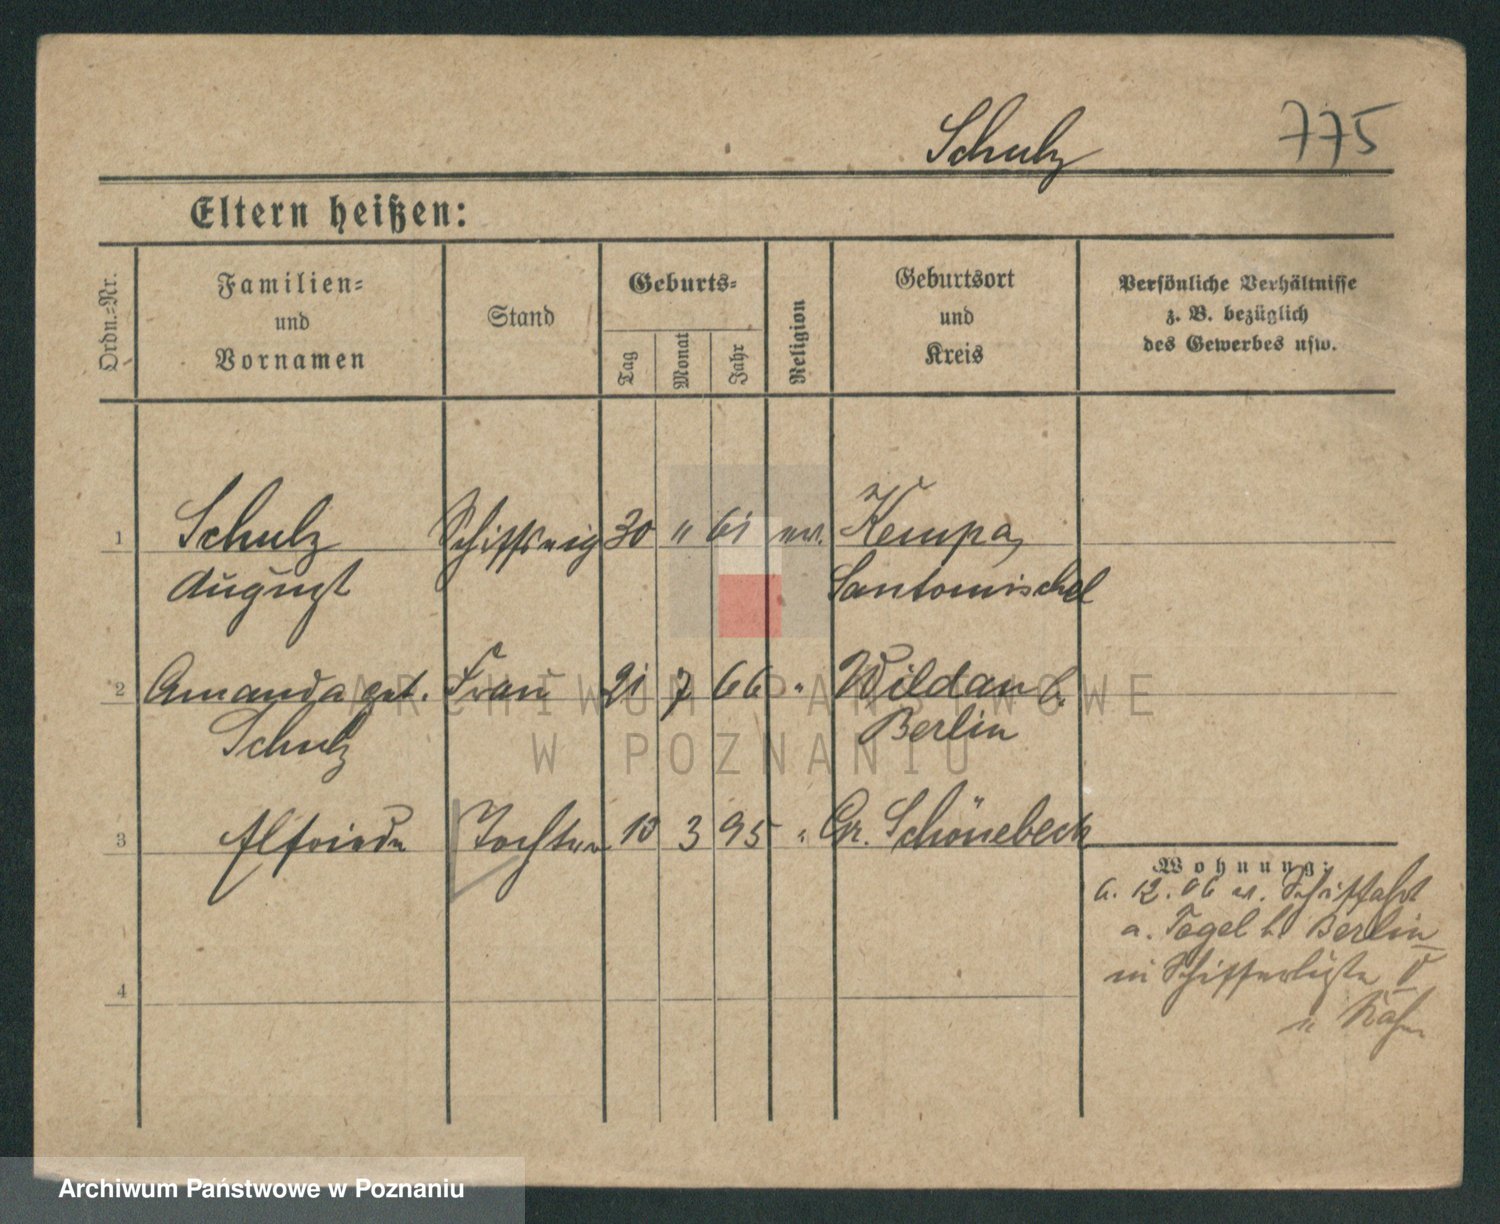 Schulz 775
Eltern heißen:
Ordn.-Nr.
Familien-
und
Vornamen
Stand
Geburts-
Tag
Monat
Jahr
Religion
Geburtsort
und
Kreis
Persönliche Verhältnisse
z. B. bezüglich
des Gewerbes usw.
1 Schulz Schiffseig 30 " 61 ev. Kempa,
August Santomischel
2 Amanda geb. Frau 21 7 66 " Wildau b.
Schulz Berlin
3 Elfriede Tochter 10 3 95 " Gr. Schönebeck
Wohnung:
6. 12. 06 Schiffahrt
a. Tegel b. Berlin
in Schifferliste
4
ARCHIWUM PAŃSTWOWE
W POZNANIU
Archiwum Państwowe w Poznaniu